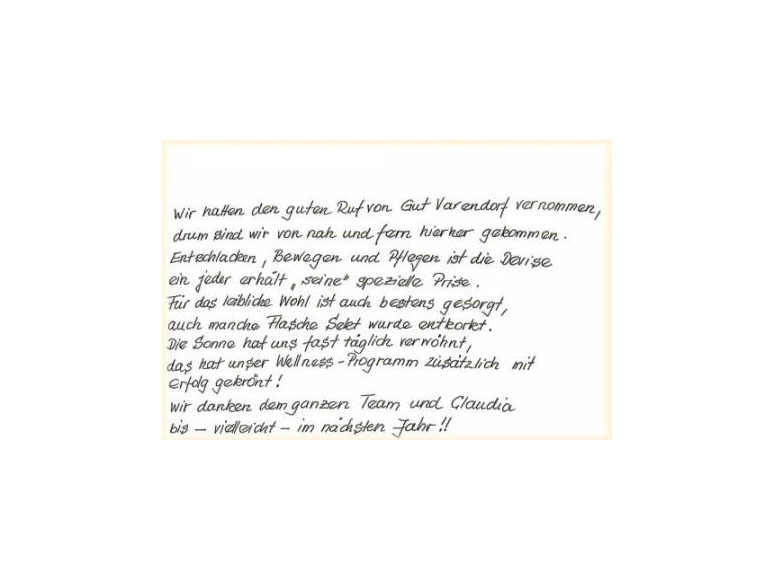 Wir hatten den guten Ruf von Gut Varendorf vernommen,
drum sind wir von nah und fern hierher gekommen.
Entschlacken, Bewegen und Pflegen ist die Devise
ein jeder erhält „seine“ spezielle Prise.
Für das leibliche Wohl ist auch bestens gesorgt,
auch manche Flasche Sekt wurde entkorkt.
Die Sonne hat uns fast täglich verwöhnt,
das hat unser Wellness-Programm zusätzlich mit
Erfolg gekrönt!
Wir danken dem ganzen Team und Claudia
bis – vielleicht – im nächsten Jahr!!